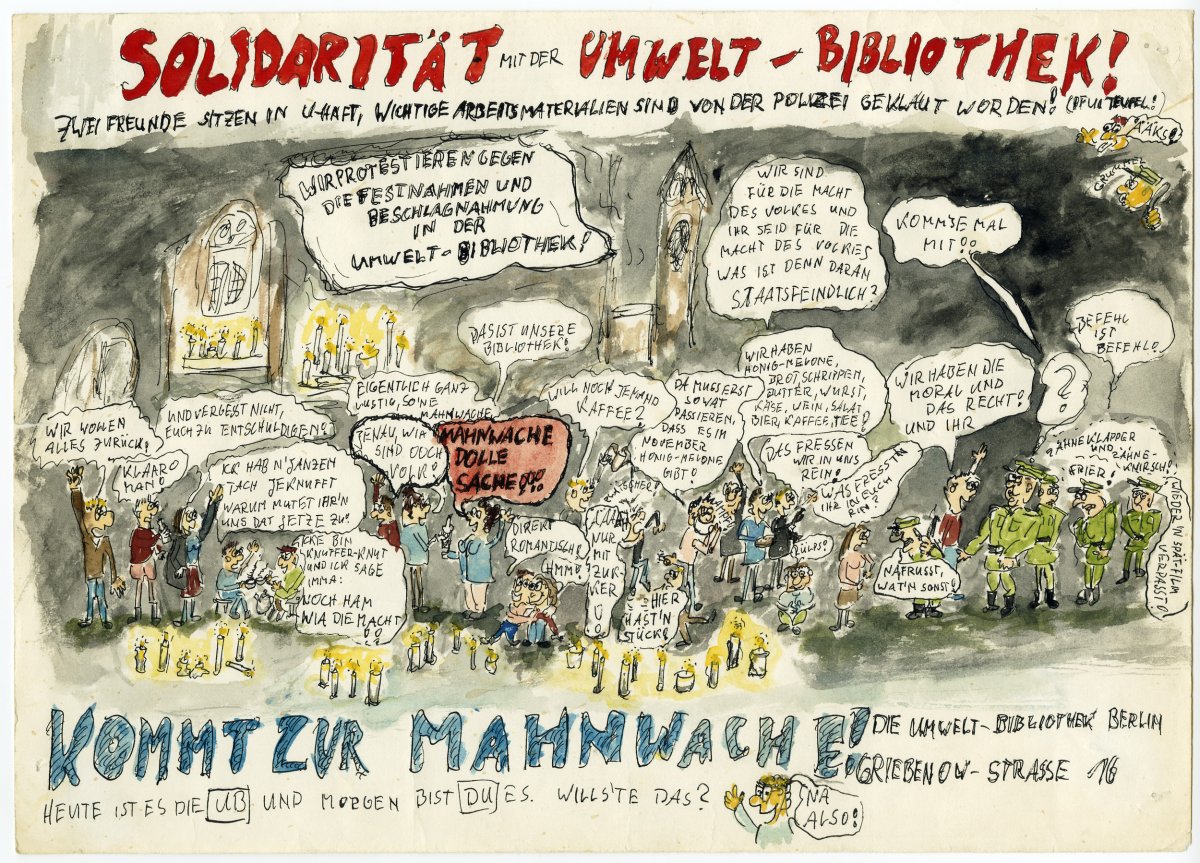 SOLIDARITÄT MIT DER UMWELT-BIBLIOTHEK!
ZWEI FREUNDE SITZEN IN U-HAFT, WICHTIGE ARBEITSMATERIALIEN SIND VON DER POLIZEI GEKLAUT WORDEN! (PFUI TEUFEL!)
ÄÄKS!
GRUMMEL
WIR PROTESTIEREN GEGEN
DIE FESTNAHMEN UND
BESCHLAGNAHMUNG
IN DER
UMWELT-BIBLIOTHEK!
WIR SIND
FÜR DIE MACHT
DES VOLKES UND
IHR SEID FÜR DIE
MACHT DES VOLKES
WAS IST DENN DARAN
STAATSFEINDLICH?
KOMM'SE MAL
MIT!
BEFEHL
IST
BEFEHL!
DAS IST UNSERE
BIBLIOTHEK!
WIR WOLLEN
ALLES ZURÜCK!
KLAARO
MAN!
UND VERGESST NICHT,
EUCH ZU ENTSCHULDIGEN!
EIGENTLICH GANZ
LUSTIG, SO'NE
MAHNWACHE
JENAU, WIR
SIND DOCH
VOLK!
MAHNWACHE
DOLLE
SACHE!!!
WILL NOCH JEMAND
KAFFEE?
DA MUSS ERST
SOWAT
PASSIEREN,
DASS ES IM
NOVEMBER
HONIG-MELONE
GIBT!
WIR HABEN
HONIG-MELONE,
BROT, SCHRIPPEN,
BUTTER, WURST,
KÄSE, WEIN, SALAT
BIER, KAFFEE, TEE!
DAS FRESSEN
WIR IN UNS
REIN!
WAS FRESST'N
IHR IN EUCH
EIN?
WIR HABEN DIE
MORAL UND
DAS RECHT!
UND IHR
?
ZÄHNEKLAPPER
UND ZÄHNE-
KNIRSCH!
FRIER!
WIEDER 'N SPÄT-FILM
VERPASST!
ICK HAB N'JANZEN
TACH JEKNUFFT
WARUM MUTET IHR'N
UNS DAT JETZE ZU!
ICKE BIN
KNUFFER-KNUT
UND ICK SAGE
IMMA:
NOCH HAM
WIA DIE MACHT!
DIREKT
ROMANTISCH!
HMM!
KLAAR
NUR MIT
ZUK-
KER
Ü!
HIER
HAST'N
STÜCK!
RÜLPS!
NA FRUSST,
WAT'N SONST!
KOMMT ZUR MAHNWACHE!
DIE UMWELT-BIBLIOTHEK BERLIN
GRIEBENOW-STRASSE 16
HEUTE IST ES DIE UB UND MORGEN BIST DU ES. WILLS'TE DAS?
NA
ALSO!